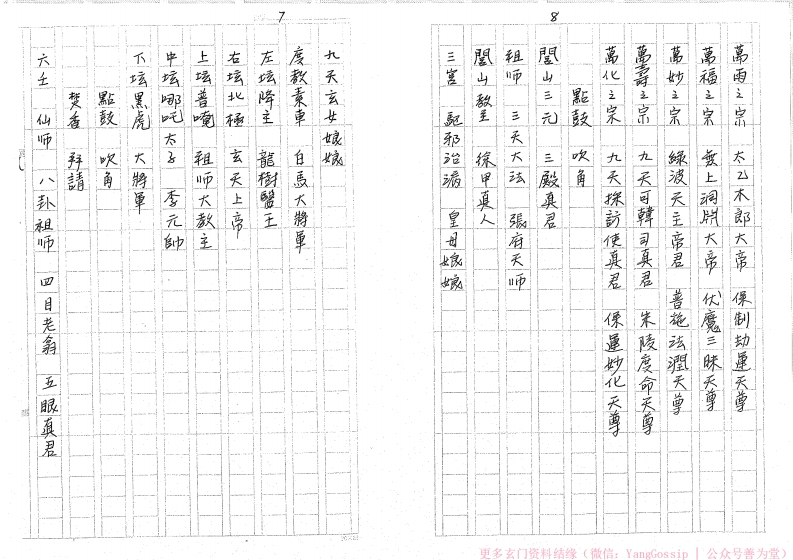 8
萬雨之宗 太乙木郎大帝 保制劫運天尊
萬福之宗 無上洞淵大帝 伏魔三昧天尊
萬妙之宗 綠波天主帝君 普施法潤天尊
萬壽之宗 九天可韓司真君 朱陵度命天尊
萬化之宗 九天採訪使真君 保運妙化天尊
點鼓 吹角
閭山三元 三殿真君
祖师 三天大法 張府天师
閭山教主 徐甲真人
三宮 駈邪治 皇母娘娘
7
九天玄女娘娘
度教素車 白馬大將軍
左坛降主 龍樹醫王
右坛北極 玄天上帝
上坛普唵 祖师大教主
中坛哪吒太子 李元帥
下坛黑虎 大將軍
點鼓 吹角
焚香 拜請
六壬 仙师 八卦祖师 四目老翁 五眼真君
更多玄门资料结缘（微信：YangGossip | 公众号善为堂）